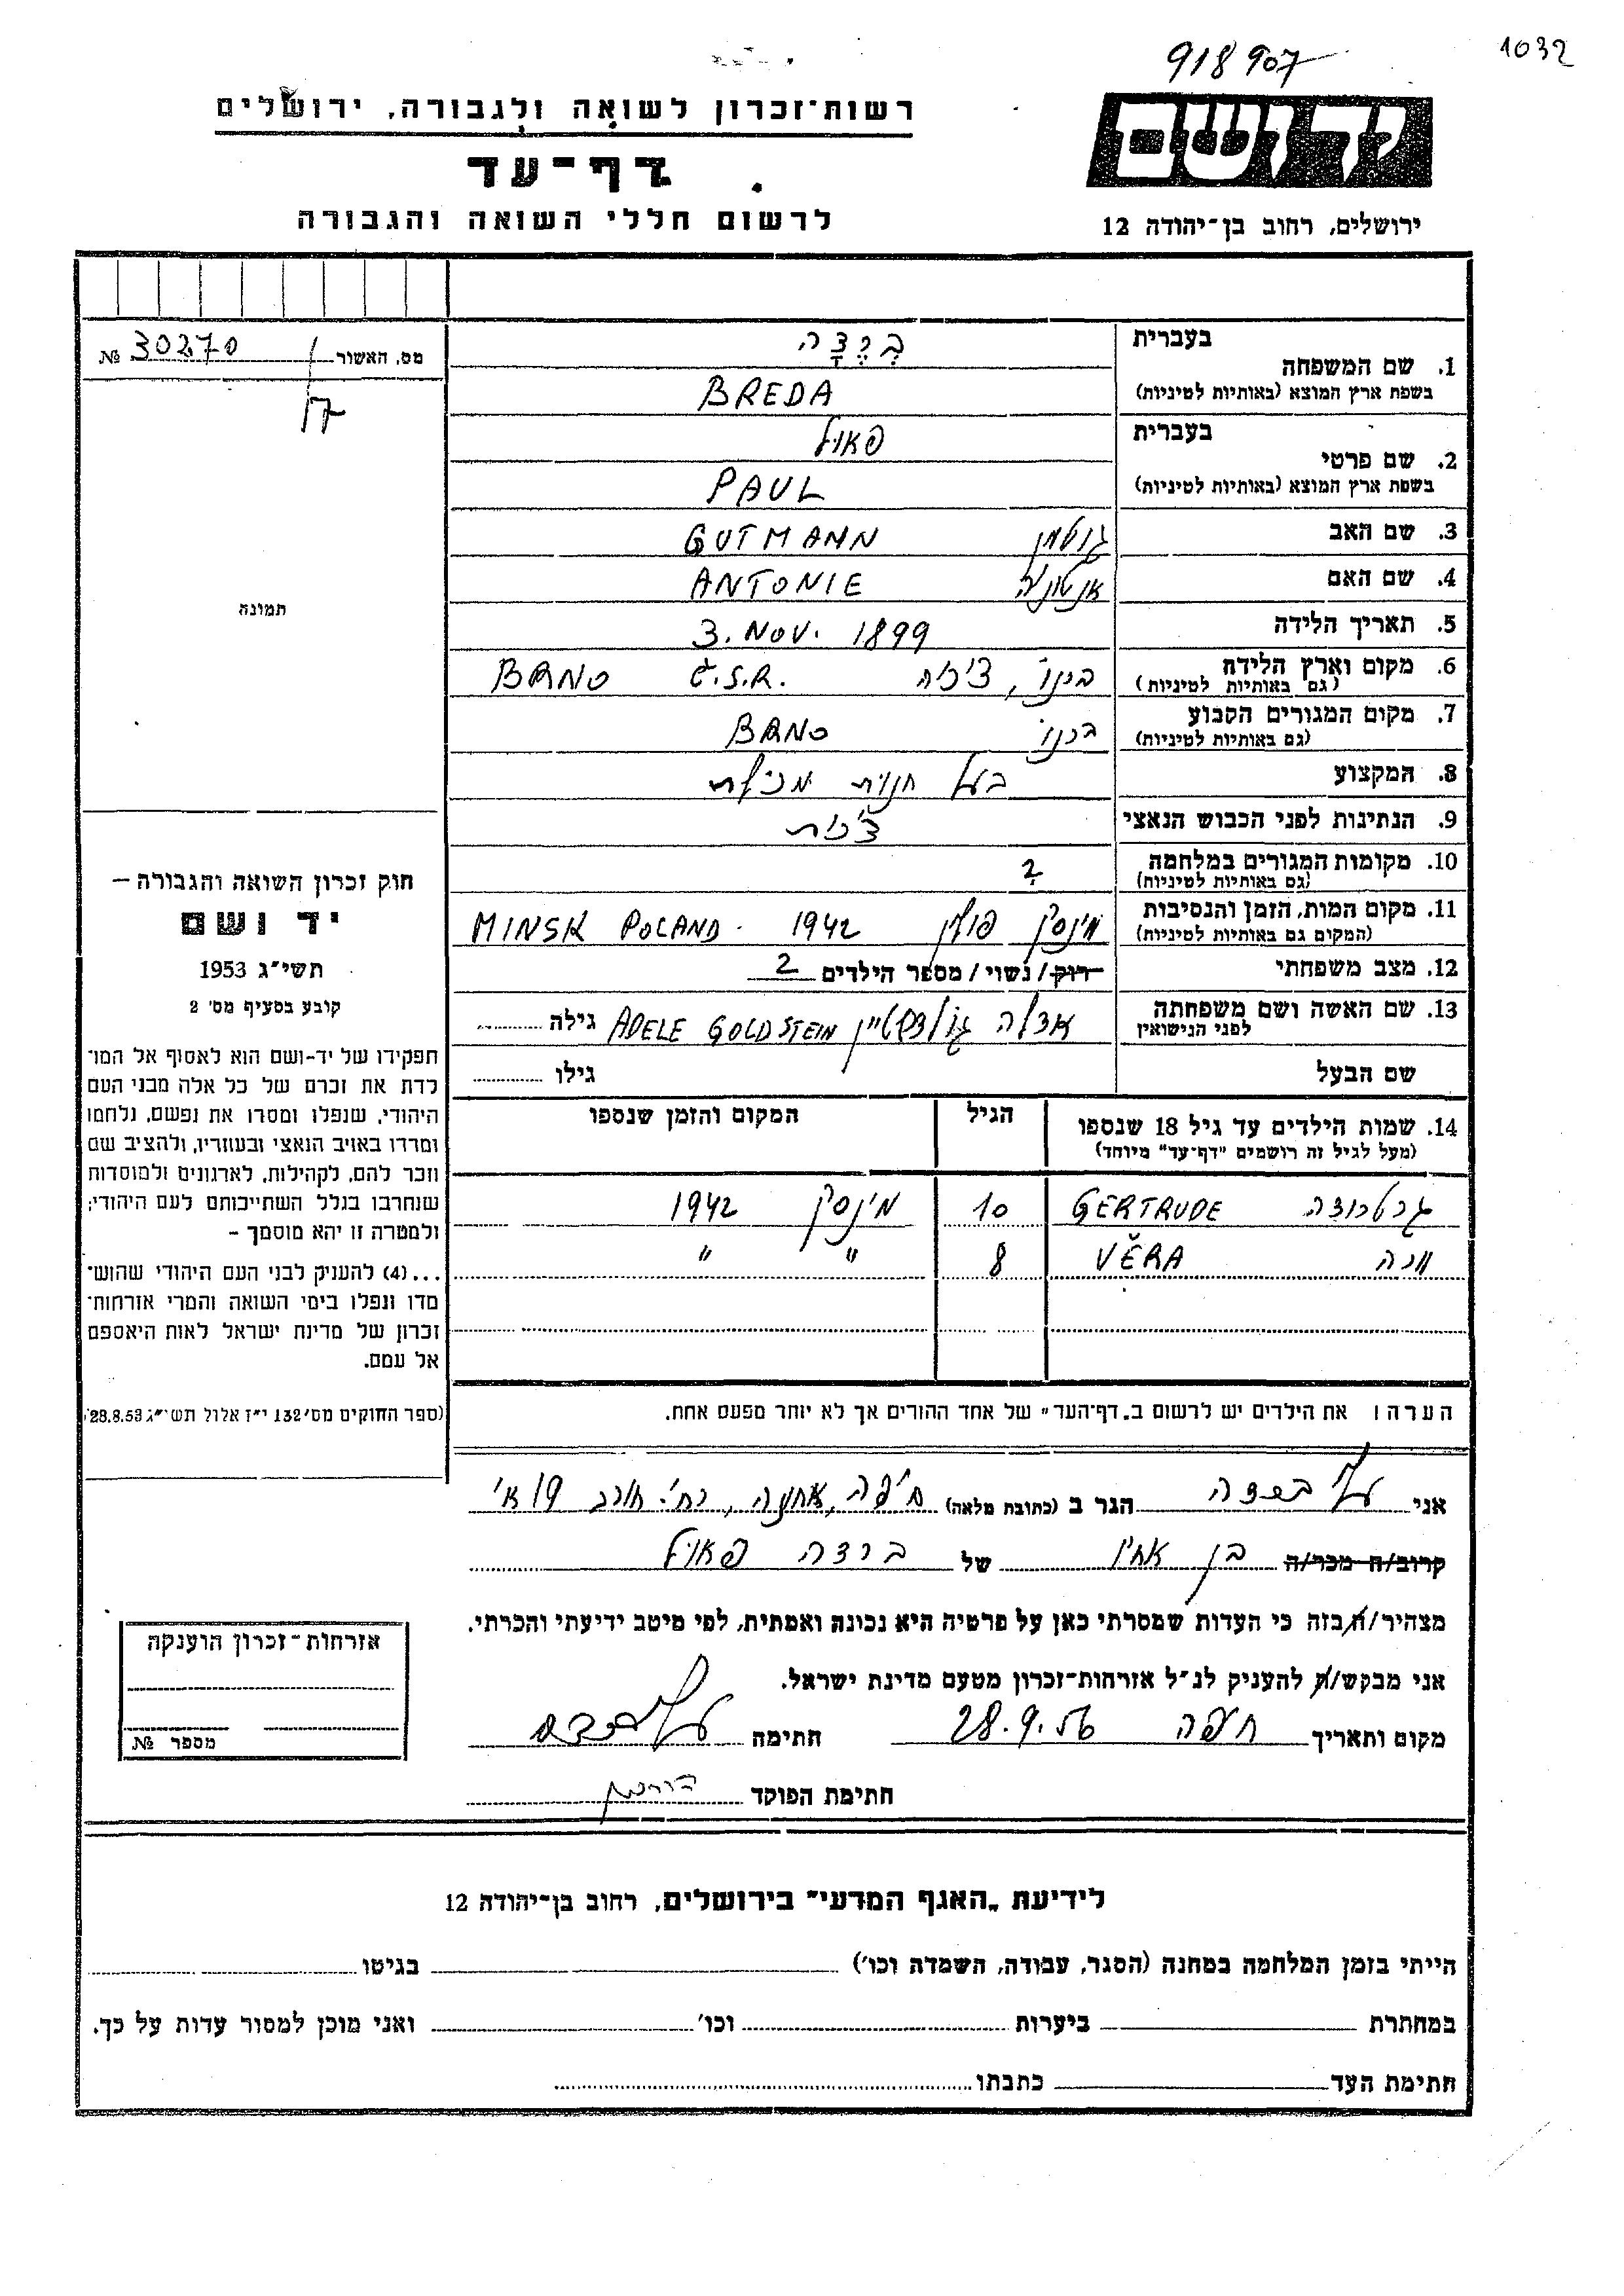 918907
1032
ידושם
ירושלים, רחוב בן־יהודה 12
רשות־זכרון לשואה ולגבורה, ירושלים
דף־עד
לרשום חללי השואה והגבורה
מס. האשור 30270 №
תמונה
חוק זכרון השואה והגבורה –
יד ושם
תשי״ג 1953
קובע בסעיף מס׳ 2
תפקידו של יד-ושם הוא לאסוף אל המו־
לדת את זכרם של כל אלה מבני העם
היהודי, שנפלו ומסרו את נפשם, נלחמו
ומרדו באויב הנאצי ובעוזריו, ולהציב שם
וזכר להם, לקהילות, לארגונים ולמוסדות
שנחרבו בגלל השתייכותם לעם היהודי;
ולמטרה זו יהא מוסמך –
...(4) להעניק לבני העם היהודי שהוש־
מדו ונפלו בימי השואה והמרי אזרחות־
זכרון של מדינת ישראל לאות היאספם
אל עמם.
(ספר החוקים מס׳ 132 י״ז אלול תשי״ג 28.8.53)
בעברית בְּרֶדָה
1. שם המשפחה
בשפת ארץ המוצא (באותיות לטיניות) BREDA
בעברית פאול
2. שם פרטי
בשפת ארץ המוצא (באותיות לטיניות) PAUL
3. שם האב גוטמן GUTMANN
4. שם האם אנטוניה ANTONIE
5. תאריך הלידה 3. NOV. 1899
6. מקום וארץ הלידה ברנו, צ׳כיה Č.S.R. BRNO
(גם באותיות לטיניות)
7. מקום המגורים הקבוע ברנו BRNO
(גם באותיות לטיניות)
8. המקצוע בעל חנות מכולת
9. הנתינות לפני הכבוש הנאצי צ׳כית
10. מקומות המגורים במלחמה ?
(גם באותיות לטיניות)
11. מקום המות, הזמן והנסיבות מינסק פולין 1942 MINSK POLAND.
(המקום גם באותיות לטיניות)
12. מצב משפחתי רוק/נשוי/מספר הילדים 2
13. שם האשה ושם משפחתה אדלה גולדשטיין ADELE GOLDSTEIN גילה
לפני הנישואין
שם הבעל גילו
14. שמות הילדים עד גיל 18 שנספו הגיל המקום והזמן שנספו
(מעל לגיל זה רושמים "דף־עד" מיוחד)
גרטרודה GERTRUDE 10 מינסק 1942
ורה VĚRA 8 " "
הערה: את הילדים יש לרשום ב„דף־העד״ של אחד ההורים אך לא יותר מפעם אחת.
אני ברדה הגר ב (כתובת מלאה) חיפה, אחוזה, רח׳ חורב 19 א׳
קרוב/ה מכר/ה בן אחיו של ברדה פאול
מצהיר/ה בזה כי העדות שמסרתי כאן על פרטיה היא נכונה ואמתית, לפי מיטב ידיעתי והכרתי.
אני מבקש/ת להעניק לנ״ל אזרחות־זכרון מטעם מדינת ישראל.
מקום ותאריך חיפה 28.9.56 חתימה
חתימת הפוקד
אזרחות־זכרון הוענקה
מספר №
לידיעת „האגף המדעי״ בירושלים, רחוב בן־יהודה 12
הייתי בזמן המלחמה במחנה (הסגר, עבודה, השמדה וכו׳) בגיטו
במחתרת ביערות וכו׳ ואני מוכן למסור עדות על כך.
חתימת העד כתבתו